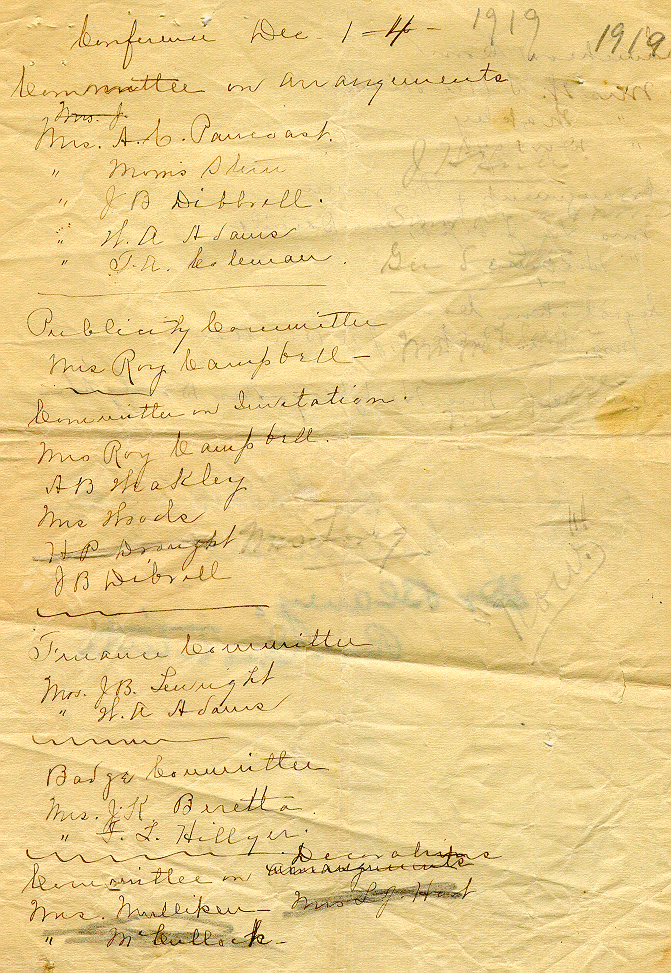 Conference Dec 1-4- 1919 1919
Committee on arrangements
Mrs. J.
Mrs. A. C. Pancoast.
" Morris Stern
" J B Dibbrell.
" W. A Adams
" T. A. Coleman.
Publicity Committee
Mrs Roy Campbell-
Committee on Invitation.
Mrs Roy Campbell.
A B Weakley
Mrs Woods
H P Drought Mrs
J B Dibrell
Finance Committee
Mrs. J. B. Lewright
" W. A Adams
Badge Committee
Mrs. J. K Beretta.
" F. L. Hillyer.
Decorations
Committee on arrangements
Mrs. Mulliken- Mrs L. J. Hart
" McCullock-